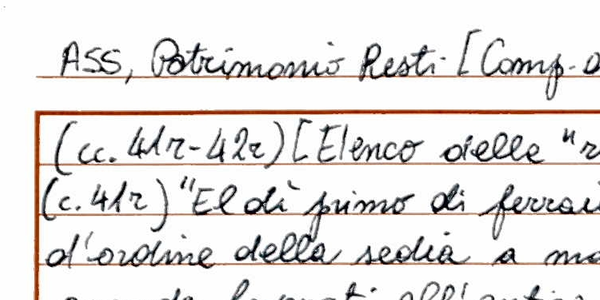 ASS, Patrimonio Resti [Comp. 
(cc. 41r-42r) [Elenco delle "
(c. 41r) "El dì primo di ferrai
d'ordine della sedia a